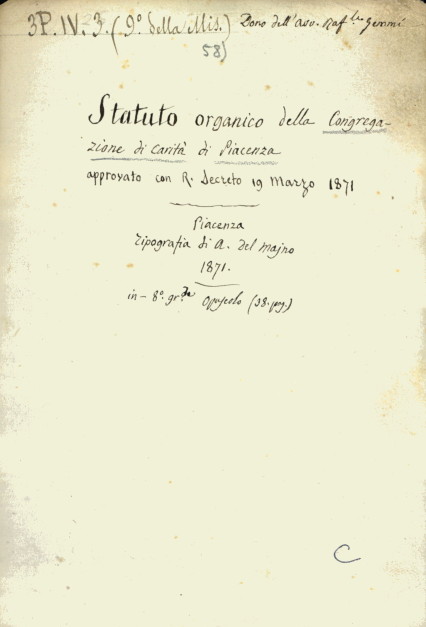 3P.IV.3.(9º della Mis.) Dono dell'avv. Raf.le Gemmi
58)
Statuto organico della Congrega-
zione di Carità di Piacenza
approvato con R. Decreto 19 Marzo 1871
Piacenza
Tipografia di A. del Majno
1871.
in-8º. gr.de Opuscolo (38. pag.)
C